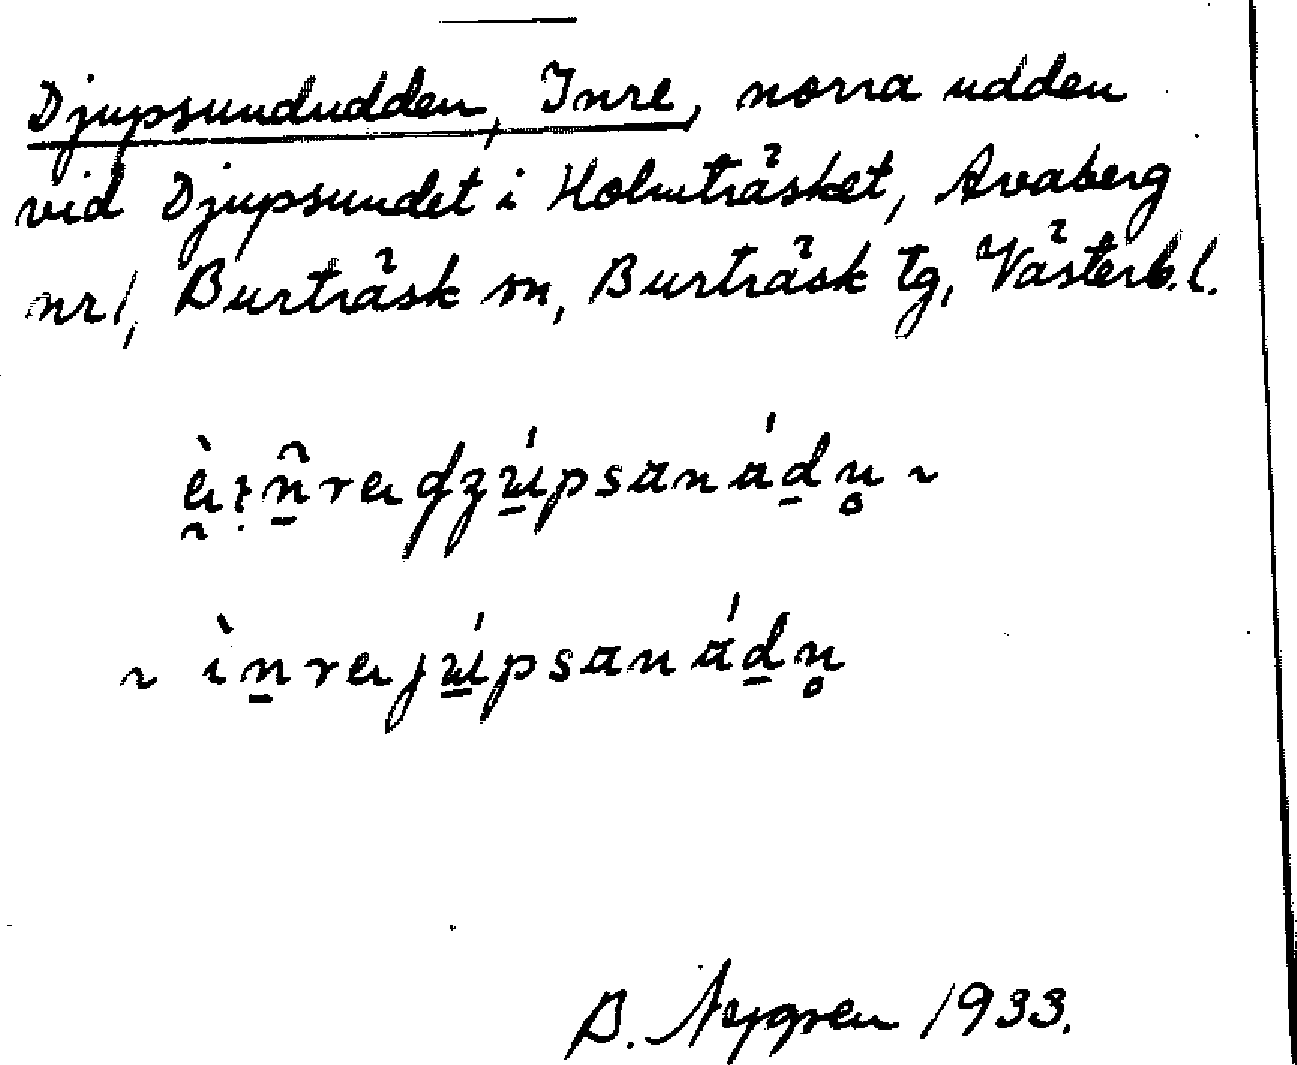 Djupsundudden, Inre, norra udden
vid Djupsundet i Holmträsket, Avaberg
nr 1, Burträsk sn, Burträsk tg, Västerb. l.
B. Nygren 1933.